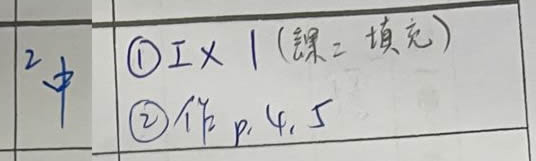 2 中
①工×1(課二填充)
②作 p.4.5